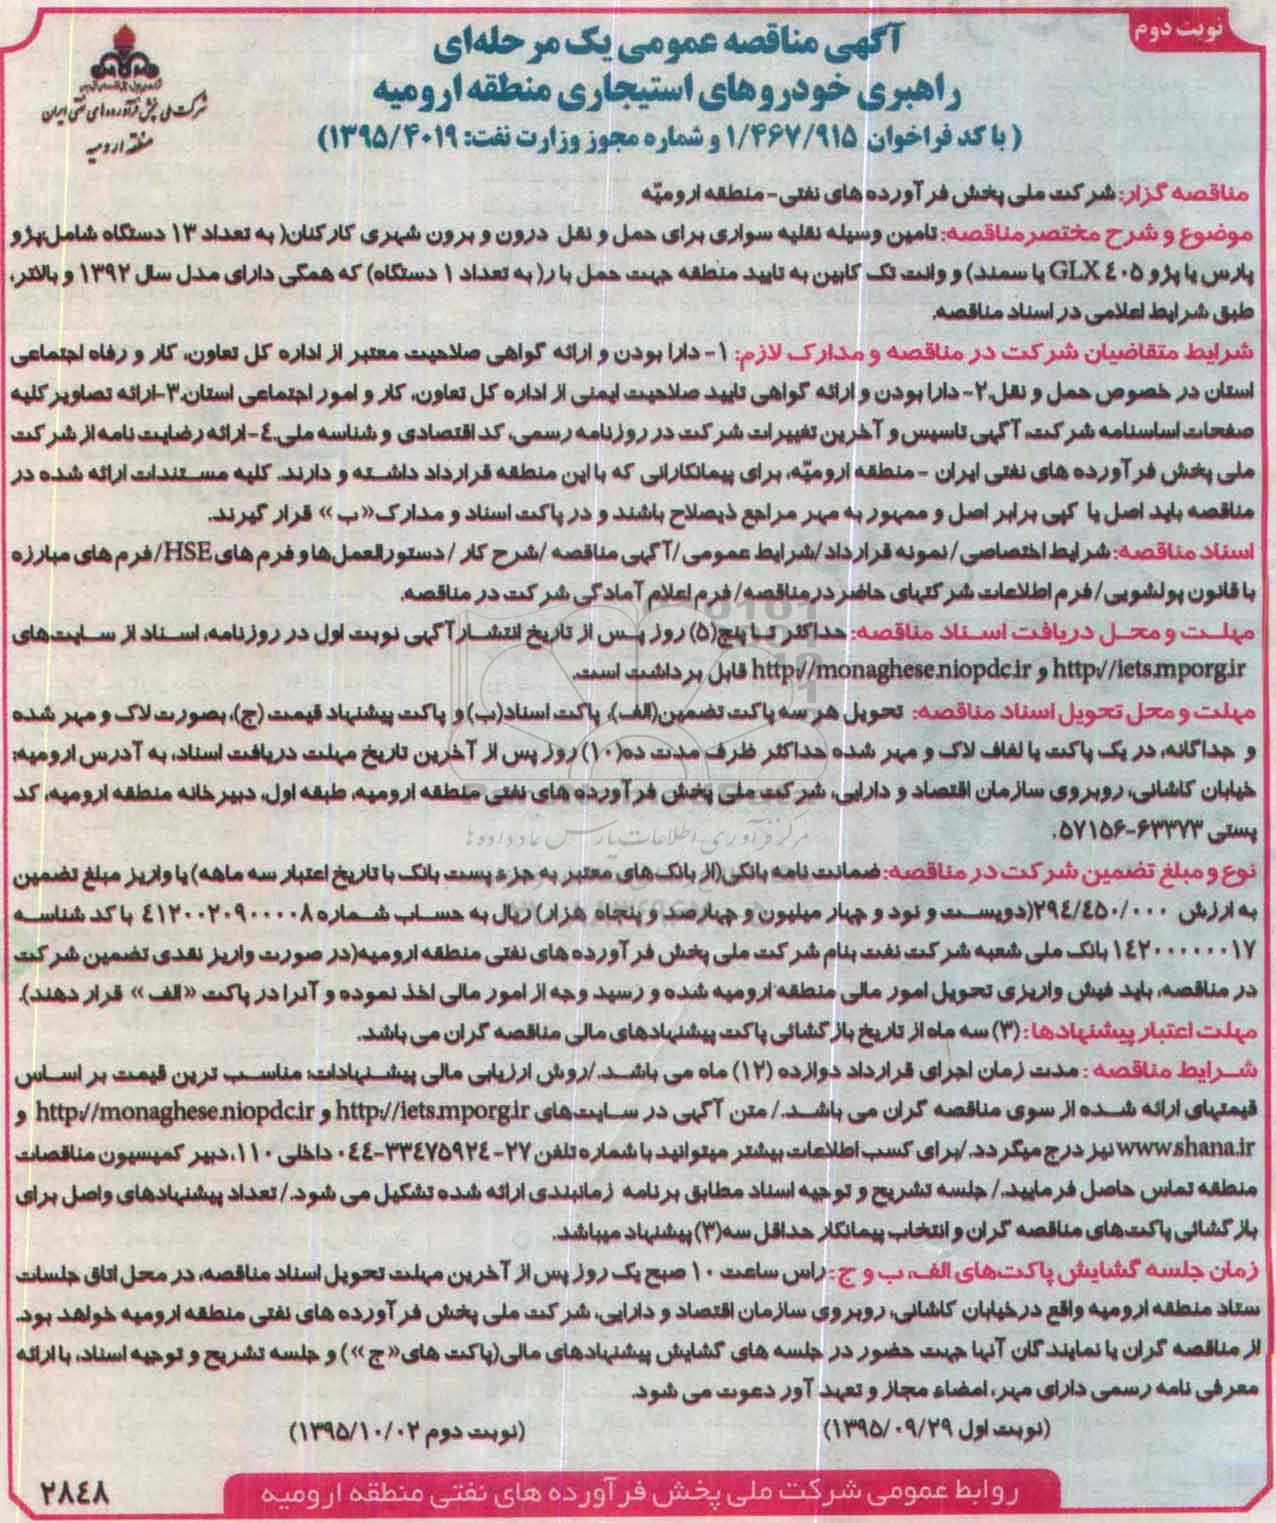 نوبت دوم
آگهی مناقصه عمومی یک مرحله‌ای
راهبری خودروهای استیجاری منطقه ارومیه
( با کد فراخوان ۱/۴۶۷/۹۱۵ و شماره مجوز وزارت نفت: ۱۳۹۵/۴۰۱۹)
شرکت ملی پخش فرآورده‌های نفتی ایران
منطقه ارومیه
مناقصه گزار: شرکت ملی پخش فرآورده های نفتی- منطقه ارومیّه
موضوع و شرح مختصر مناقصه: تامین وسیله نقلیه سواری برای حمل و نقل درون و برون شهری کارکنان( به تعداد ۱۳ دستگاه شامل:پژو
پارس یا پژو ۴۰۵ GLX یا سمند) و وانت تک کابین به تایید منطقه جهت حمل بار( به تعداد ۱ دستگاه) که همگی دارای مدل سال ۱۳۹۲ و بالاتر،
طبق شرایط اعلامی در اسناد مناقصه.
شرایط متقاضیان شرکت در مناقصه و مدارک لازم: ۱- دارا بودن و ارائه گواهی صلاحیت معتبر از اداره کل تعاون، کار و رفاه اجتماعی
استان در خصوص حمل و نقل.۲- دارا بودن و ارائه گواهی تایید صلاحیت ایمنی از اداره کل تعاون، کار و امور اجتماعی استان.۳-ارائه تصاویر کلیه
صفحات اساسنامه شرکت، آگهی تاسیس و آخرین تغییرات شرکت در روزنامه رسمی، کد اقتصادی و شناسه ملی.۴-ارائه رضایت نامه از شرکت
ملی پخش فرآورده های نفتی ایران -منطقه ارومیّه، برای پیمانکارانی که با این منطقه قرارداد داشته و دارند. کلیه مستندات ارائه شده در
مناقصه باید اصل یا کپی برابر اصل و ممهور به مهر مراجع ذیصلاح باشند و در پاکت اسناد و مدارک«ب» قرار گیرند.
اسناد مناقصه: شرایط اختصاصی/ نمونه قرارداد/شرایط عمومی/آگهی مناقصه /شرح کار / دستورالعمل‌ها و فرم های HSE/ فرم های مبارزه
با قانون پولشویی/ فرم اطلاعات شرکتهای حاضر درمناقصه/ فرم اعلام آمادگی شرکت در مناقصه.
مهلت و محل دریافت اسناد مناقصه: حداکثر تا پنج(۵) روز پس از تاریخ انتشار آگهی نوبت اول در روزنامه، اسناد از سایت‌های
http://iets.mporg.ir و http://monaghese.niopdc.ir قابل برداشت است.
مهلت و محل تحویل اسناد مناقصه: تحویل هر سه پاکت تضمین(الف)، پاکت اسناد(ب) و پاکت پیشنهاد قیمت (ج)، بصورت لاک و مهر شده
و جداگانه، در یک پاکت یا لفاف لاک و مهر شده حداکثر ظرف مدت ده(۱۰) روز پس از آخرین تاریخ مهلت دریافت اسناد، به آدرس ارومیه:
خیابان کاشانی، روبروی سازمان اقتصاد و دارایی، شرکت ملی پخش فرآورده های نفتی منطقه ارومیه، طبقه اول، دبیرخانه منطقه ارومیه، کد
پستی ۶۳۳۷۳-۵۷۱۵۶.
نوع و مبلغ تضمین شرکت در مناقصه: ضمانت نامه بانکی(از بانک‌های معتبر به جزء پست بانک با تاریخ اعتبار سه ماهه) یا واریز مبلغ تضمین
به ارزش ۲۹۴/۴۵۰/۰۰۰(دویست و نود و چهار میلیون و چهارصد و پنجاه هزار) ریال به حساب شماره ۴۱۲۰۰۲۰۹۰۰۰۰۸ با کد شناسه
۱۴۲۰۰۰۰۰۰۰۱۷ بانک ملی شعبه شرکت نفت بنام شرکت ملی پخش فرآورده های نفتی منطقه ارومیه(در صورت واریز نقدی تضمین شرکت
در مناقصه، باید فیش واریزی تحویل امور مالی منطقه ارومیه شده و رسید وجه از امور مالی اخذ نموده و آنرا در پاکت «الف» قرار دهند).
مهلت اعتبار پیشنهادها: (۳) سه ماه از تاریخ بازگشائی پاکت پیشنهادهای مالی مناقصه گران می باشد.
شرایط مناقصه : مدت زمان اجرای قرارداد دوازده (۱۲) ماه می باشد./روش ارزیابی مالی پیشنهادات: مناسب ترین قیمت بر اساس
قیمتهای ارائه شده از سوی مناقصه گران می باشد./ متن آگهی در سایت‌های http://iets.mporg.ir و http://monaghese.niopdc.ir و
www.shana.ir نیز درج میگردد./برای کسب اطلاعات بیشتر میتوانید با شماره تلفن ۲۷-۳۳۴۷۵۹۲۴-۰۴۴ داخلی ۱۱۰، دبیر کمیسیون مناقصات
منطقه تماس حاصل فرمایید./ جلسه تشریح و توجیه اسناد مطابق برنامه زمانبندی ارائه شده تشکیل می شود./ تعداد پیشنهادهای واصل برای
بازگشائی پاکت‌های مناقصه گران و انتخاب پیمانکار حداقل سه(۳) پیشنهاد میباشد.
زمان جلسه گشایش پاکت‌های الف، ب و ج: راس ساعت ۱۰ صبح یک روز پس از آخرین مهلت تحویل اسناد مناقصه، در محل اتاق جلسات
ستاد منطقه ارومیه واقع درخیابان کاشانی، روبروی سازمان اقتصاد و دارایی، شرکت ملی پخش فرآورده های نفتی منطقه ارومیه خواهد بود.
از مناقصه گران یا نمایندگان آنها جهت حضور در جلسه های گشایش پیشنهادهای مالی(پاکت های«ج») و جلسه تشریح و توجیه اسناد، با ارائه
معرفی نامه رسمی دارای مهر، امضاء مجاز و تعهد آور دعوت می شود.
(نوبت اول ۱۳۹۵/۰۹/۲۹) (نوبت دوم ۱۳۹۵/۱۰/۰۲)
روابط عمومی شرکت ملی پخش فرآورده های نفتی منطقه ارومیه
۲۸۴۸